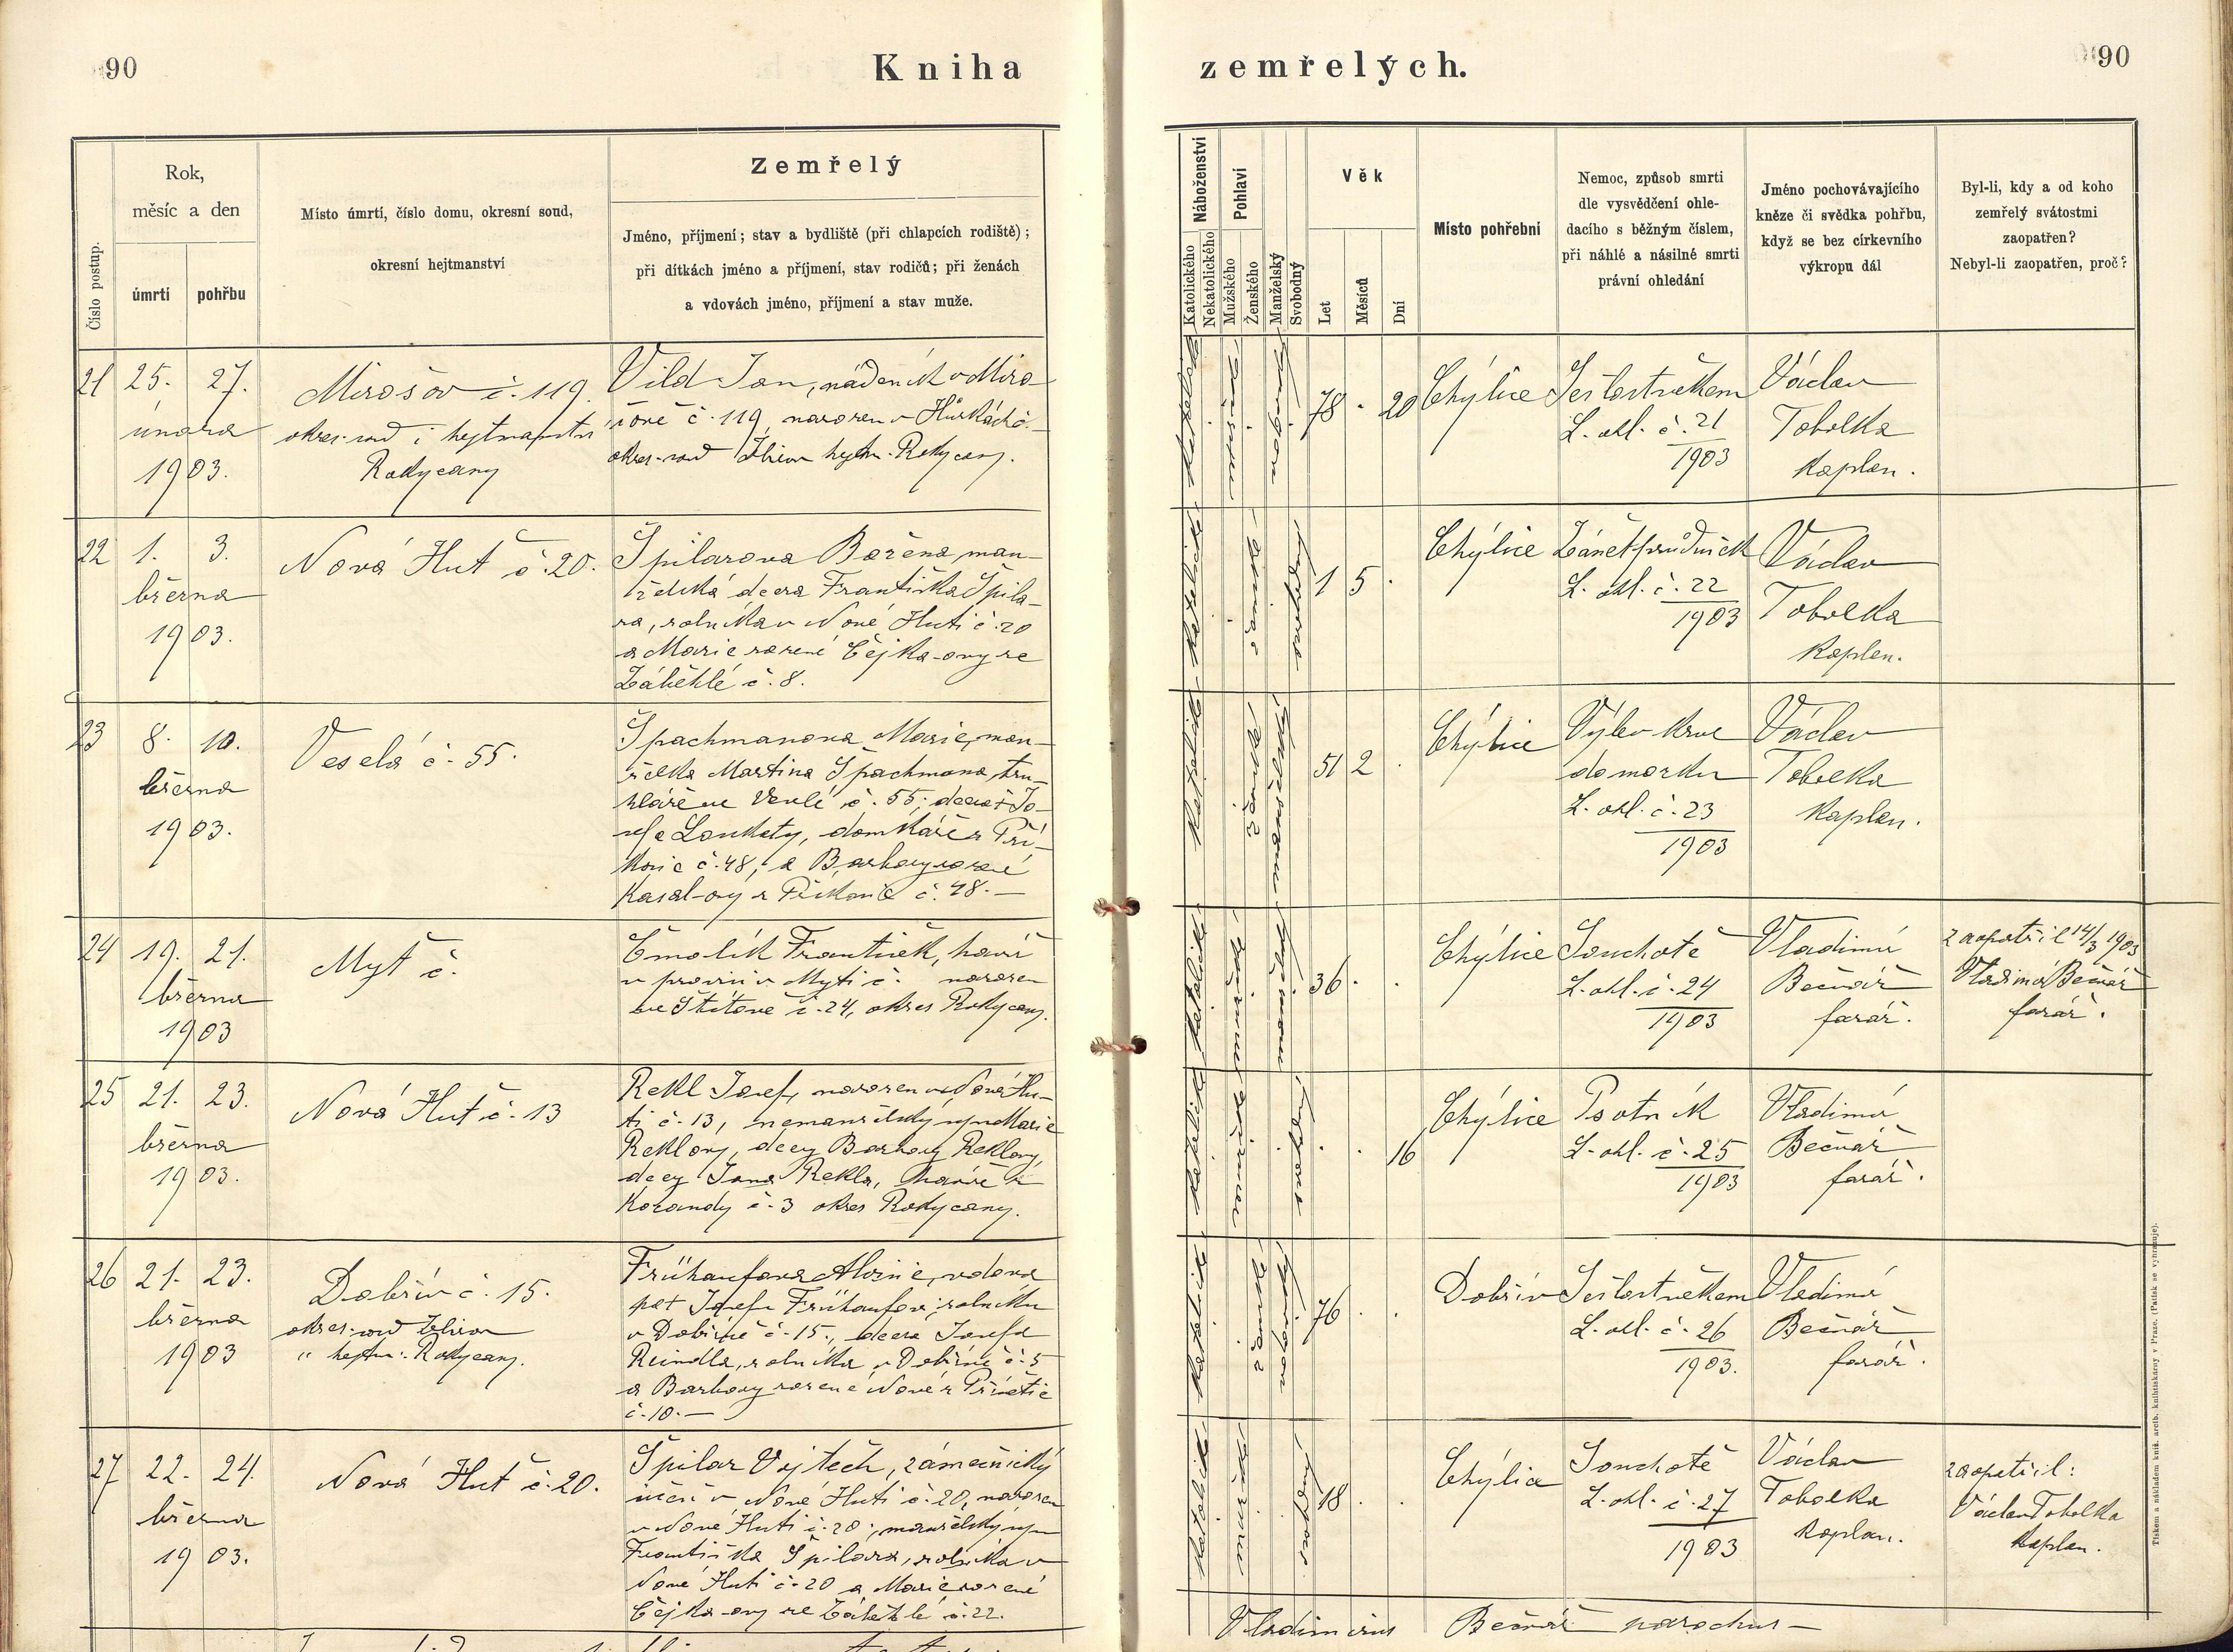 90
Kniha
zemřelých.
90
Číslo postup.
Rok,
měsíc a den
úmrtí
pohřbu
Místo úmrtí, číslo domu, okresní soud,
okresní hejtmanství
Zemřelý
Jméno, příjmení; stav a bydliště (při chlapcích rodiště);
při dítkách jméno a příjmení, stav rodičů; při ženách
a vdovách jméno, příjmení a stav muže.
Náboženství
Katolického
Nekatolického
Pohlaví
Mužského
Ženského
Manželský
Svobodný
Věk
Let
Měsíců
Dní
Místo pohřební
Nemoc, způsob smrti
dle vysvědčení ohle-
dacího s běžným číslem,
při náhlé a násilné smrti
právní ohledání
Jméno pochovávajícího
kněze či svědka pohřbu,
když se bez církevního
výkropu dál
Byl-li, kdy a od koho
zemřelý svátostmi
zaopatřen?
Nebyl-li zaopatřen, proč?
21
25. 27.
února
1903.
Mirošov č. 119.
okres. soud i hejtmanství
Rokycany
Vild Jan, nádeník v Miro-
šově č. 119, narozen v Hůrkách č.
okres. soud Zbirov hejtm. Rokycany.
katolické
mužské
78 . 20
Chýlice
Sešlost věkem
L. ohl. č. 21
1903
Václav
Tobolka
kaplan.
22
1. 3.
března
1903.
Nová Huť č. 20.
Špilarova Božena, man-
želská dcera Františka Špila-
ra, rolníka v Nové Huti č. 20
a Marie rozené Čejka-ovy ze
Zábělé č. 8.
katolické
ženské
svobodný
1 5 .
Chýlice
Zánět průdušek
L. ohl. č. 22
1903
Václav
Tobolka
kaplan.
23
8. 10.
března
1903.
Veselá č. 55.
Špachmanova Marie, man-
želka Martina Špachmana, tru-
hláře ve Veselé č. 55; dcera † Jo-
sefa Loukoty, domkáře z Pří-
kosic č. 48, a Barbory rozené
Kasal-ovy z Příkosic č. 48.—
katolické
ženské
manželský
51 2 .
Chýlice
Výlev krve
do mozku
L. ohl. č. 23
1903
Václav
Tobolka
kaplan.
24
19. 21.
března
1903
Mýť č.
Čmolík František, havíř
v Mýti č. narozen
ve Štítově č. 24, okres Rokycany.
katolické
mužské
manželský
36 . .
Chýlice
Souchotě
L. ohl. č. 24
1903
Vladimír
Bečvář
farář.
zaopatřil 14/3 1903
Vladimír Bečvář
farář.
25
21. 23.
března
1903.
Nová Huť č. 13
Rekl Josef, narozen v Nové Hu-
ti č. 13, nemanželský syn Marie
Reklovy, dcery Barbory Reklovy,
dcery Jana Rekla, havíře z
Korandy č. 3 okres Rokycany.
katolické
mužské
svobodný
. . 16
Chýlice
Psotník
L. ohl. č. 25
1903
Vladimír
Bečvář
farář.
26
21. 23.
března
1903
Dobřív č. 15.
okres. soud Zbirov
" hejtm. Rokycany.
Frühaufova Aloisie, vdova
po † Josefu Frühaufovi, rolníku
v Dobřívě č. 15., dcera Josefa
Reindla, rolníka v Dobřívě č. 5
a Barbory rozené Nové z Přívětic
č. 10.—
katolické
ženské
76 . .
Dobřív
Sešlost věkem
L. ohl. č. 26
1903.
Vladimír
Bečvář
farář.
27
22. 24.
března
1903.
Nová Huť č. 20.
Špilar Vojtěch, zámečnický
učeň v Nové Huti č. 20, narozen
v Nové Huti č. 20, manželský syn
Františka Špilara, rolníka v
Nové Huti č. 20 a Marie rozené
Čejka-ovy ze Zábělé č. 22.
katolické
mužské
svobodný
18 . .
Chýlice
Souchotě
L. ohl. č. 27
1903
Václav
Tobolka
kaplan.
zaopatřil:
Václav Tobolka
kaplan.
Vladimirus Bečvář parochus —
Tiskem a nákladem kníž. arcib. knihtiskárny v Praze. (Patisk se vyhrazuje).